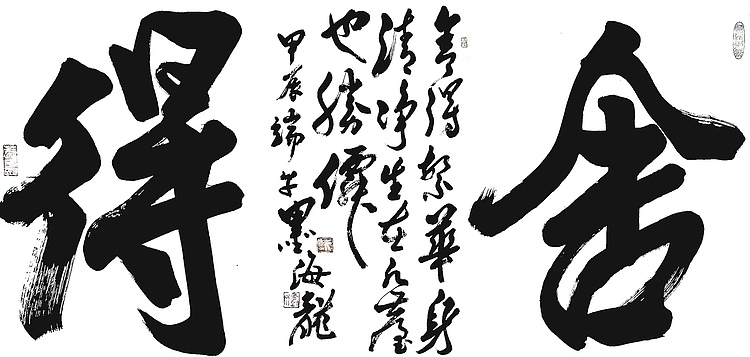 舍
舍得繁華身
清净生在凡塵
也勝僊
甲辰端午墨海龍
得